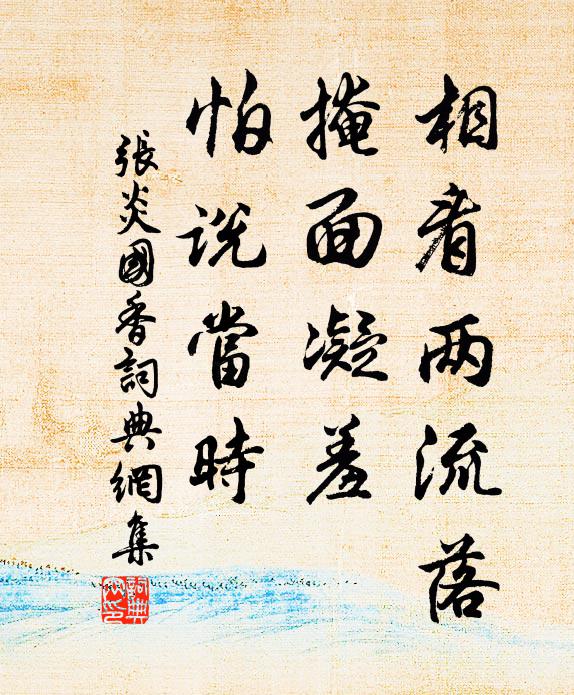 相看两流落
掩面凝羞
怕说當時
張炎國香詞典網集